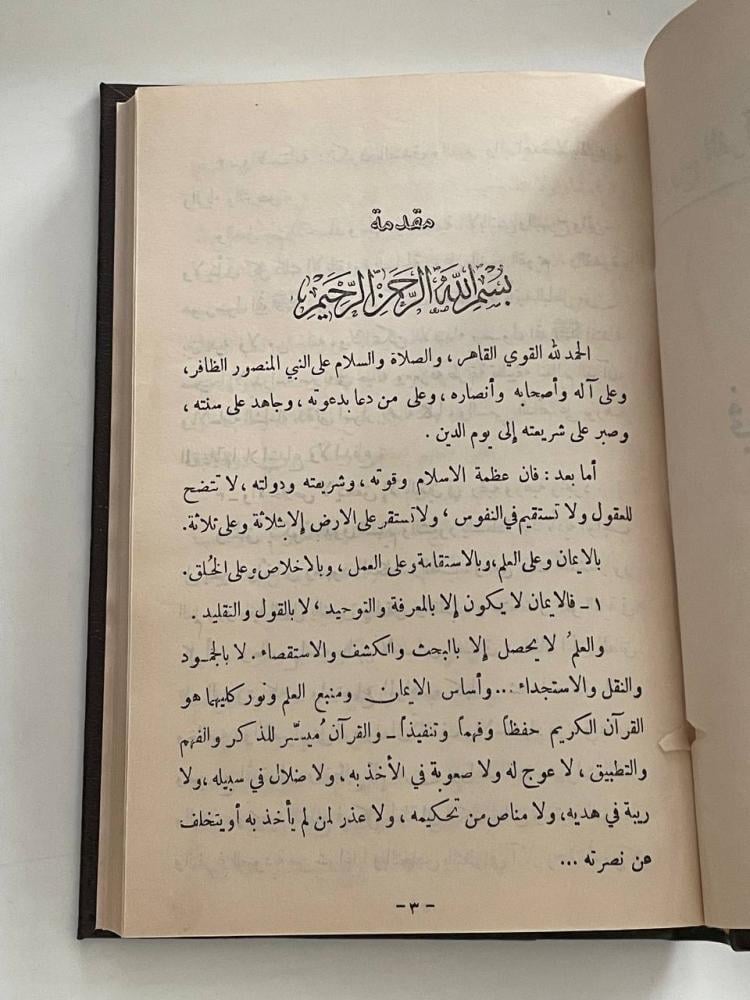 مقدمة
بسم الله الرحمن الرحيم
الحمد لله القوي القاهر ، والصلاة والسلام على النبي المنصور الظافر ،
وعلى آله وأصحابه وأنصاره ، وعلى من دعا بدعوته ، وجاهد على سنته ،
وصبر على شريعته إلى يوم الدين .
أما بعد : فان عظمة الاسلام وقوته ، وشريعته ودولته ، لا تتضح
للعقول ولا تستقيم في النفوس ، ولا تستقر على الارض إلا بثلاثة وعلى ثلاثة .
بالايمان وعلى العلم ، وبالاستقامة وعلى العمل ، وبالاخلاص وعلى الخُلق .
١ - فالايمان لا يكون إلا بالمعرفة والتوحيد ، لا بالقول والتقليد .
والعلمُ لا يحصل إلا بالبحث والكشف والاستقصاء . لا بالجمود
والنقل والاستجداء ... وأساس الايمان ومنبع العلم ونور كليهما هو
القرآن الكريم حفظاً وفهماً وتنفيذاً - والقرآن مُيسّر للذكر والفهم
والتطبيق ، لا عوج له ولا صعوبة في الأخذ به ، ولا ضلال في سبيله ، ولا
ريبة في هديه ، ولا مناص من تحكيمه ، ولا عذر لمن لم يأخذ به أو يتخلف
عن نصرته ...
- ٣ -